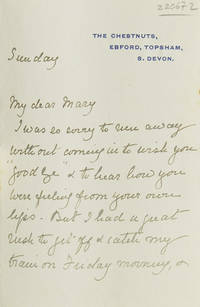 22567 2
THE CHESTNUTS,
EBFORD, TOPSHAM,
S. DEVON.
Sunday
My dear Mary
I was so sorry to run away
without coming in to wish you
"good bye" & to hear how you
were feeling from your own
lips. But I had a great
rush to get off & catch my
train on Friday morning, &